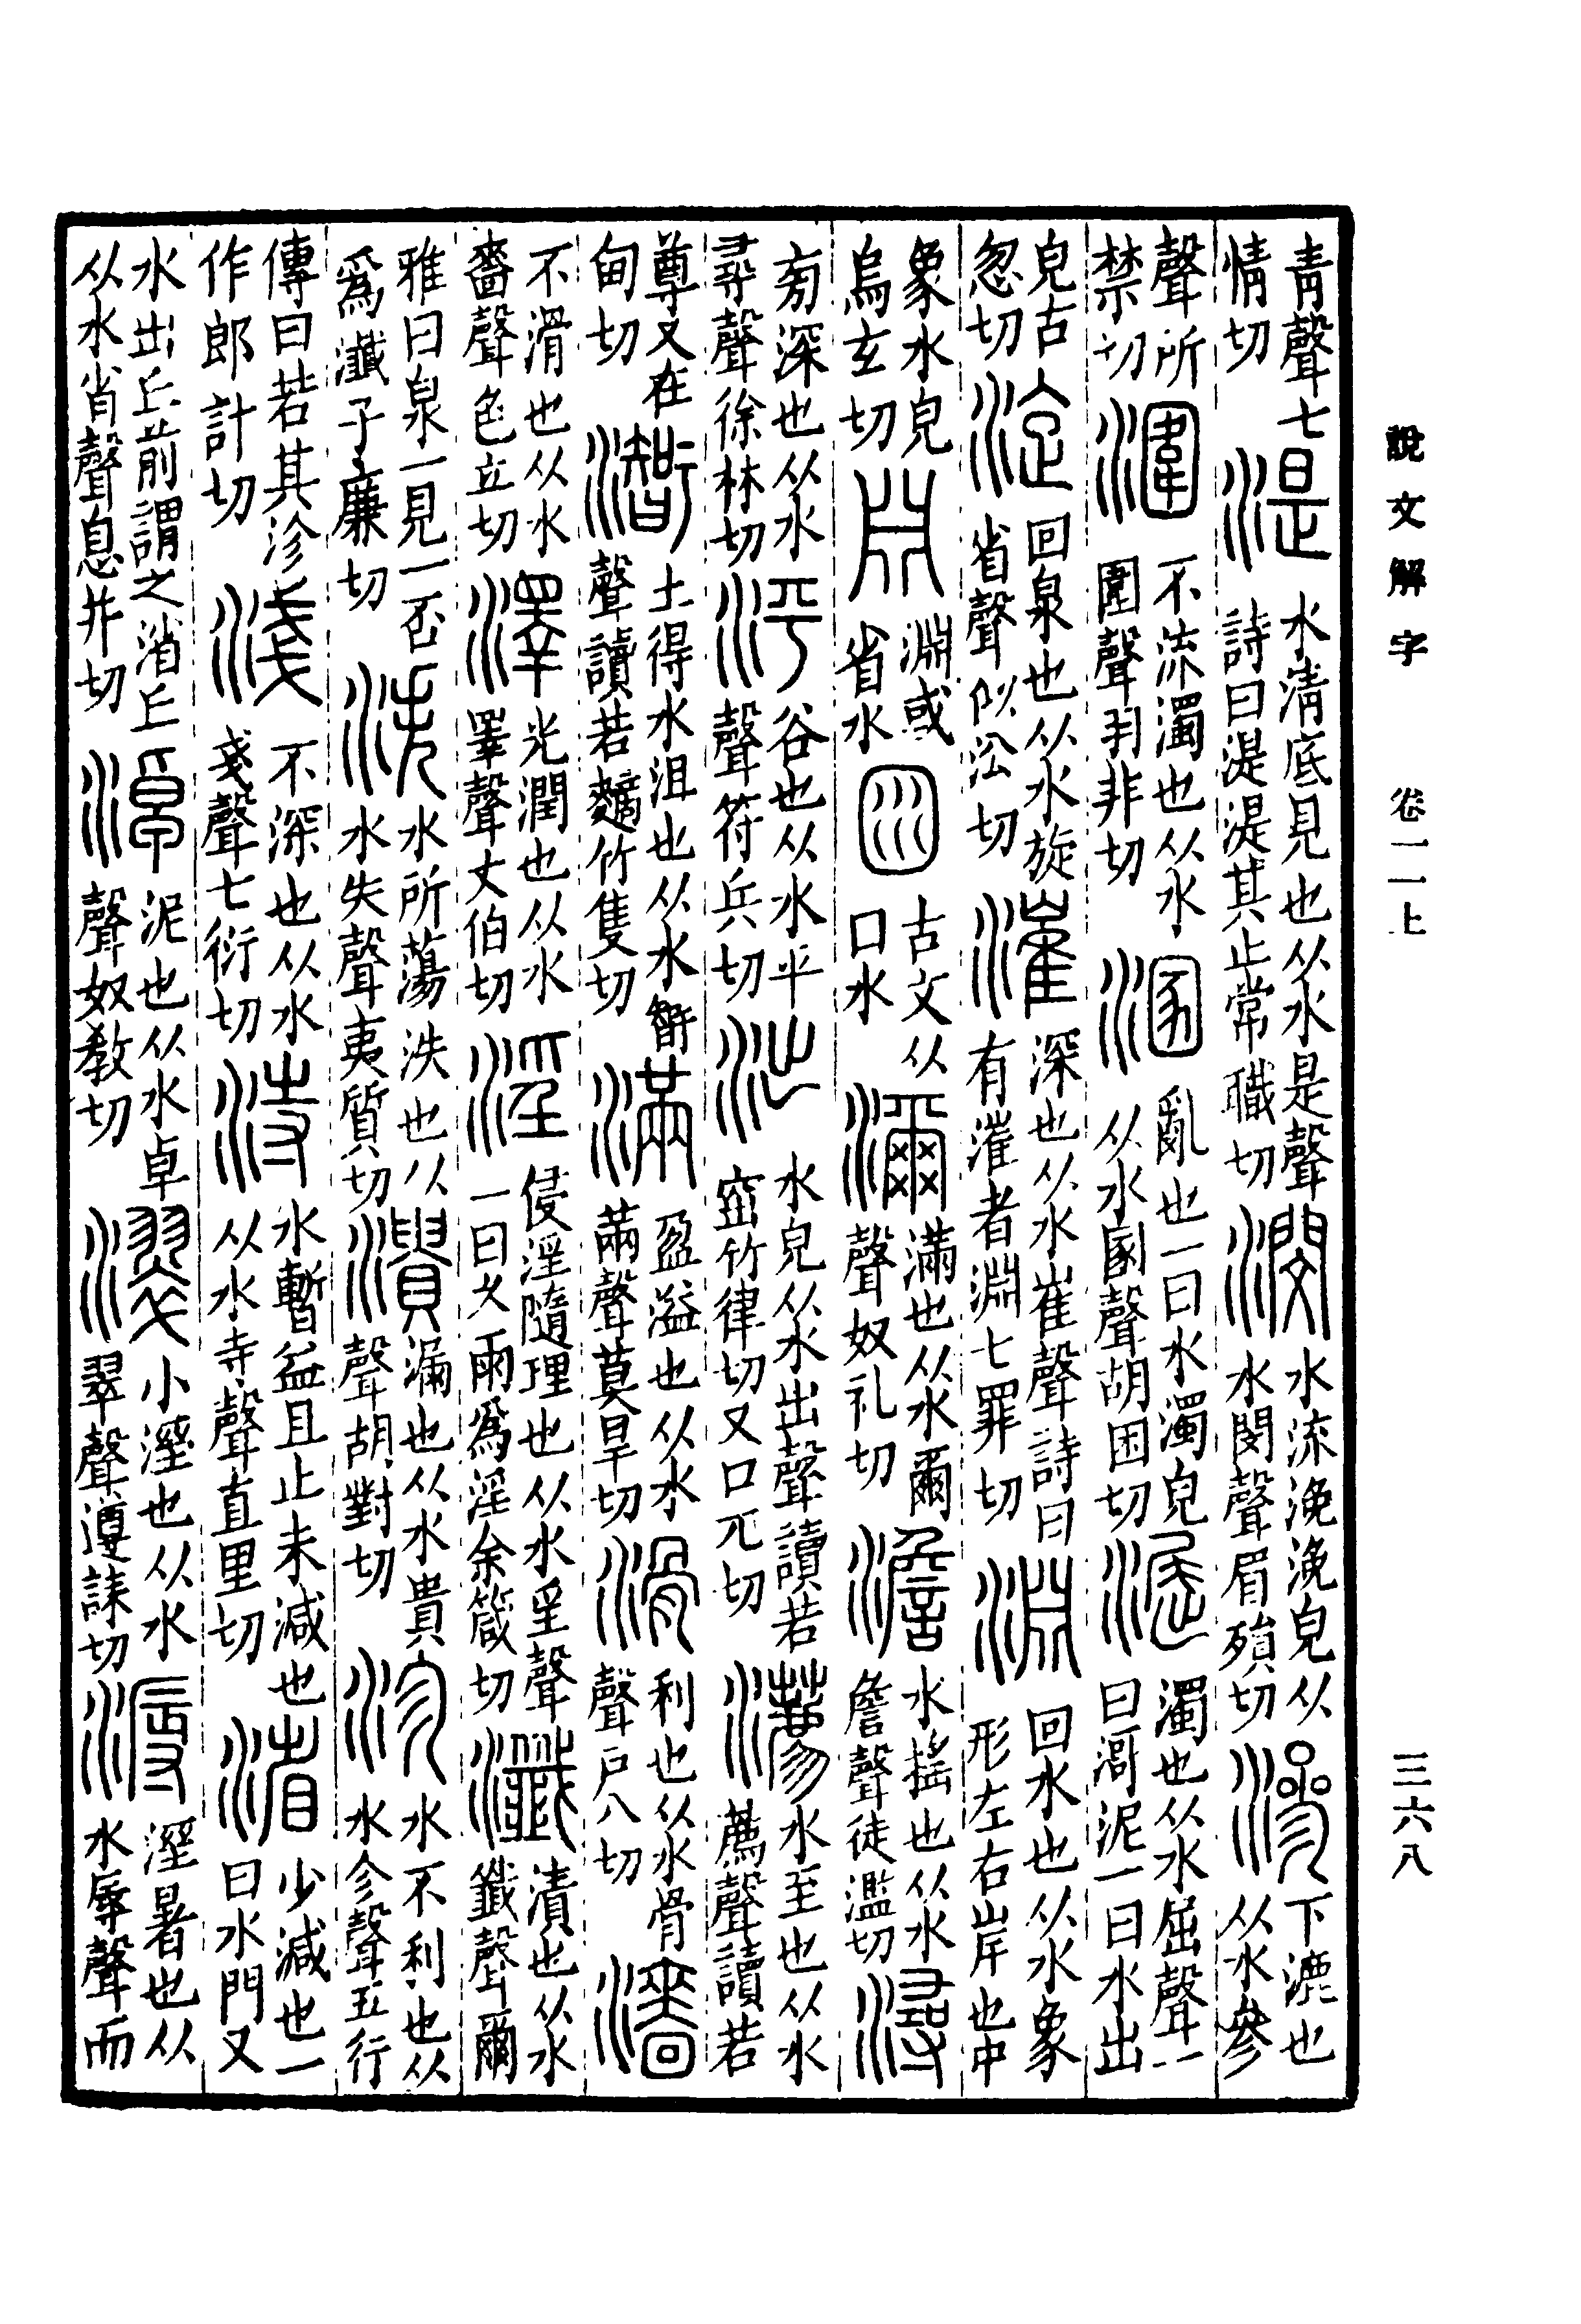 青聲七情切湜水清底見也从水是聲詩曰湜湜其止常職切潣水流浼浼皃从水閔聲眉殞切滲下漉也从水參
聲所禁切潿不流濁也从水圍聲羽非切溷亂也一曰水濁皃从水圂聲胡困切淈濁也从水屈聲一曰滒泥一曰水出
皃古忽切㳬回泉也从水旋省聲似沿切漼深也从水崔聲詩曰有漼者淵七罪切淵回水也从水象形左右岸也中
象水皃烏玄切𣶒淵或省水囦古文从囗水濔滿也从水爾聲奴礼切澹水搖也从水詹聲徒濫切潯
㫄深也从水尋聲徐林切泙谷也从水平聲符兵切泏水皃从水出聲讀若窋竹律切又口兀切瀳水至也从水薦聲讀若
尊又在甸切土得水沮也从水聲讀若麱竹隻切滿盈溢也从水㒼聲莫旱切滑利也从水骨聲戶八切濇
不滑也从水嗇聲色立切澤光潤也从水睪聲丈伯切淫侵淫隨理也从水㸒聲一曰久雨爲淫余箴切瀸漬也从水韱聲爾
雅曰泉一見一否爲瀸子廉切泆水所蕩泆也从水失聲夷質切潰漏也从水貴聲胡對切沴水不利也从水㐱聲五行
傳曰若其沴作郎計切淺不深也从水戔聲七衍切洔水暫益且止未減也从水寺聲直里切渻少減也一曰水門又
水出丘前謂之渻丘从水省聲息并切淖泥也从水卓聲奴教切小溼也从水翠聲遵誄切溽溼暑也从水辱聲而
說文解字 卷一一上 三六八